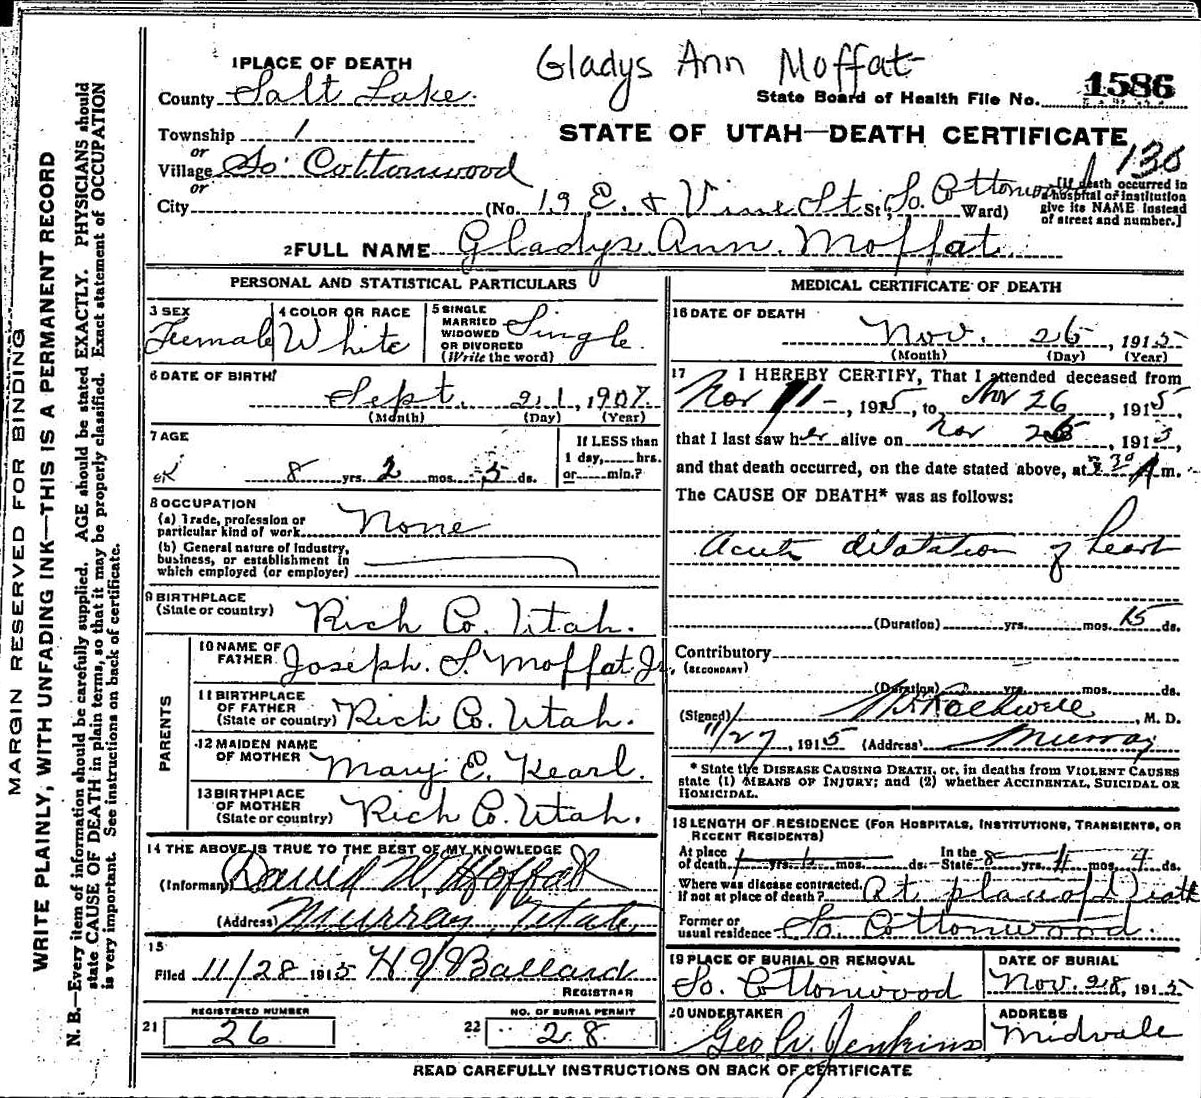 Gladys Ann Moffat
1 PLACE OF DEATH
County Salt Lake.
State Board of Health File No. 1586
Township 1
STATE OF UTAH—DEATH CERTIFICATE
130
or
Village So. Cottonwood
or
City (No. 19 E. & Vine St St.; So. Cottonwood Ward)
[If death occurred in
a hospital or institution
give its NAME instead
of street and number.]
2 FULL NAME Gladys Ann Moffat
PERSONAL AND STATISTICAL PARTICULARS
3 SEX
Female
4 COLOR OR RACE
White
5 SINGLE
MARRIED
WIDOWED
OR DIVORCED
(Write the word)
Single
6 DATE OF BIRTH
Sept. 21, 1907
(Month) (Day) (Year)
7 AGE
ok 8 yrs. 2 mos. 5 ds.
If LESS than
1 day, hrs.
or min.?
8 OCCUPATION
(a) Trade, profession or
particular kind of work None
(b) General nature of industry,
business, or establishment in
which employed (or employer)
9 BIRTHPLACE
(State or country) Rich Co. Utah.
PARENTS
10 NAME OF
FATHER Joseph. S. Moffat Jr.
11 BIRTHPLACE
OF FATHER
(State or country) Rich Co. Utah.
12 MAIDEN NAME
OF MOTHER Mary E. Kearl.
13 BIRTHPLACE
OF MOTHER
(State or country) Rich Co. Utah.
14 THE ABOVE IS TRUE TO THE BEST OF MY KNOWLEDGE
(Informant) David W. Moffat
(Address) Murray, Utah,
15
Filed 11/28 1915 H J Ballard
REGISTRAR
21 REGISTERED NUMBER
26
22 NO. OF BURIAL PERMIT
28
MEDICAL CERTIFICATE OF DEATH
16 DATE OF DEATH
Nov. 26, 1915
(Month) (Day) (Year)
17 I HEREBY CERTIFY, That I attended deceased from
Nov 11 -, 1915, to Nov 26, 1915,
that I last saw her alive on Nov 26, 1915,
and that death occurred, on the date stated above, at 30 A m.
The CAUSE OF DEATH* was as follows:
Acute dilatation of heart
(Duration) yrs. mos. 15 ds.
Contributory
(SECONDARY)
(Duration) yrs. mos. ds.
(Signed) Rockwell, M. D.
11/27, 1915 (Address) Murray
* State the DISEASE CAUSING DEATH, or, in deaths from VIOLENT CAUSES
state (1) MEANS OF INJURY; and (2) whether ACCIDENTAL, SUICIDAL OR
HOMICIDAL.
18 LENGTH OF RESIDENCE (FOR HOSPITALS, INSTITUTIONS, TRANSIENTS, OR
RECENT RESIDENTS)
At place
of death yrs. mos. ds.
In the
State 8 yrs. 4 mos. 4 ds.
Where was disease contracted,
if not at place of death? At place of Death
Former or
usual residence So. Cottonwood.
19 PLACE OF BURIAL OR REMOVAL
So. Cottonwood
DATE OF BURIAL
Nov. 28, 1915
20 UNDERTAKER
Geo W. Jenkins
ADDRESS
Midvale
READ CAREFULLY INSTRUCTIONS ON BACK OF CERTIFICATE
MARGIN RESERVED FOR BINDING
WRITE PLAINLY, WITH UNFADING INK—THIS IS A PERMANENT RECORD
N. B.—Every item of information should be carefully supplied. AGE should be stated EXACTLY. PHYSICIANS should
state CAUSE OF DEATH in plain terms, so that it may be properly classified. Exact statement of OCCUPATION
is very important. See instructions on back of certificate.